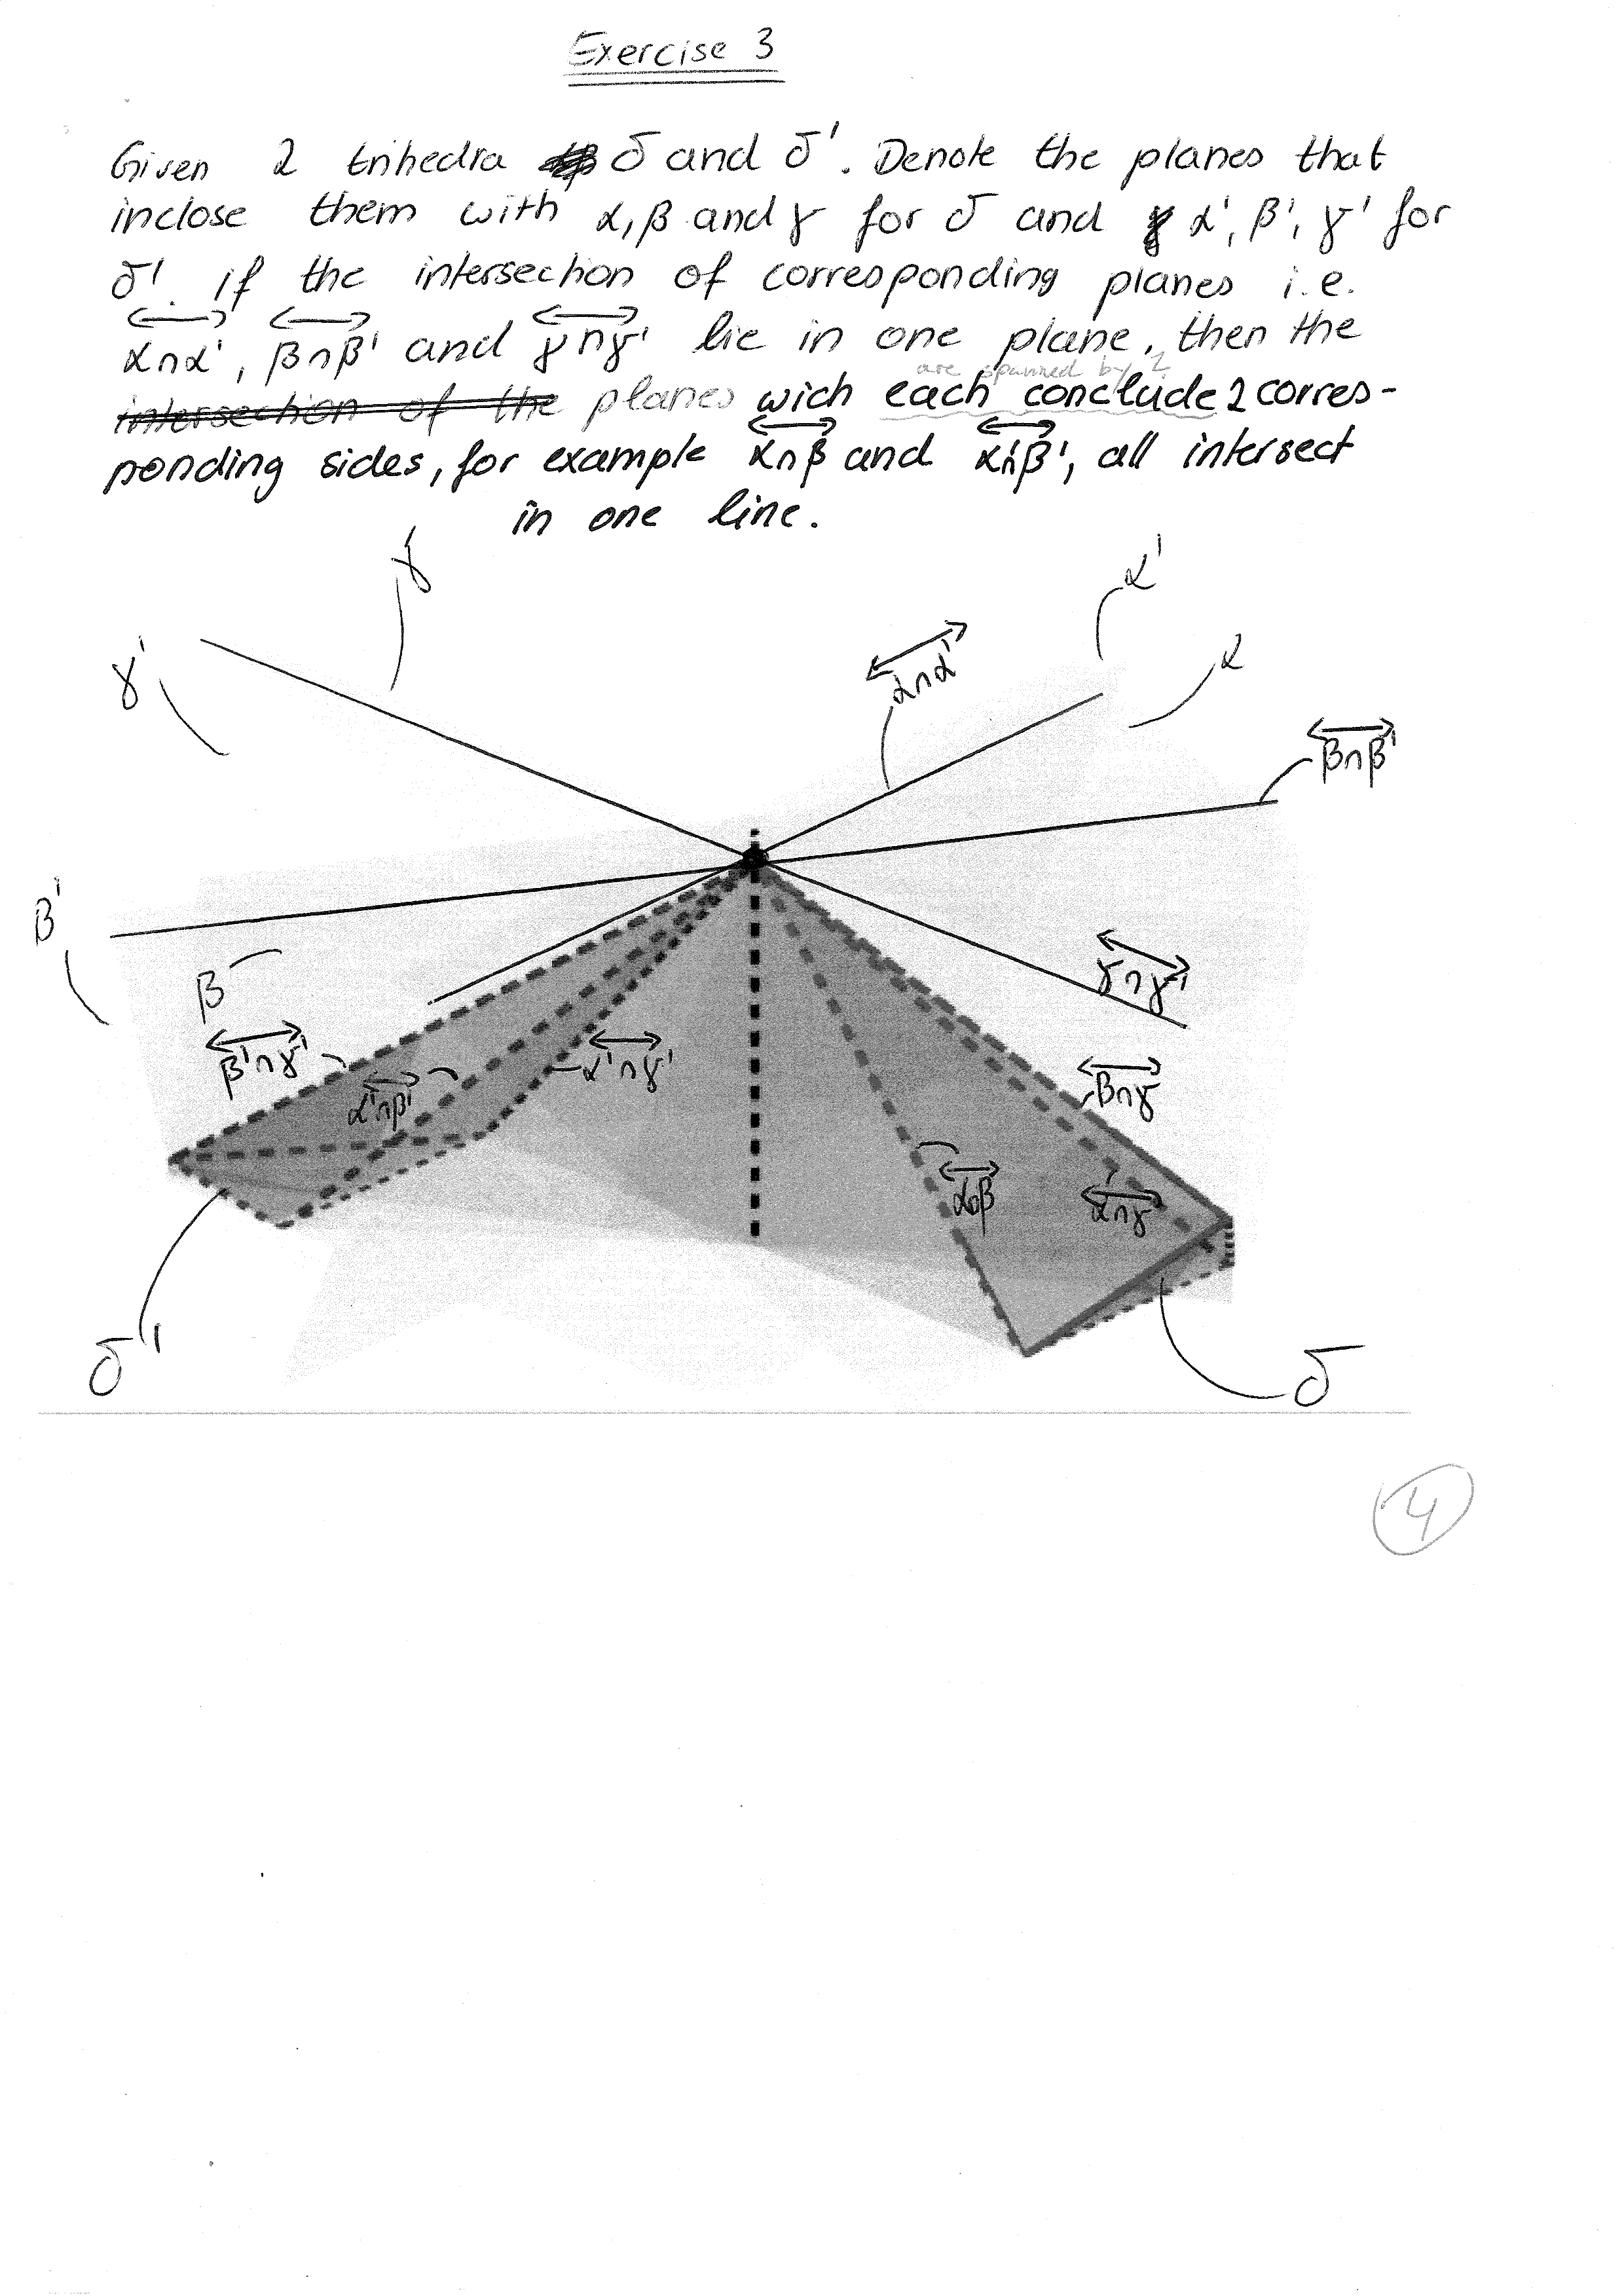 Exercise 3
Given 2 trihedra δ and δ'. Denote the planes that
inclose them with α, β and γ for δ and α', β', γ' for
δ'. If the intersection of corresponding planes i.e.
α∩α', β∩β' and γ∩γ' lie in one plane, then the
are spanned by 2
intersection of the planes wich each conclude 2 corres-
ponding sides, for example α∩β and α'∩β', all intersect
in one line.
γ
α'
γ'
α∩α'
α
β∩β'
β'
β
γ∩γ'
β'∩γ'
α'∩β'
α'∩γ'
β∩γ
α∩β
α∩γ
δ'
δ
4